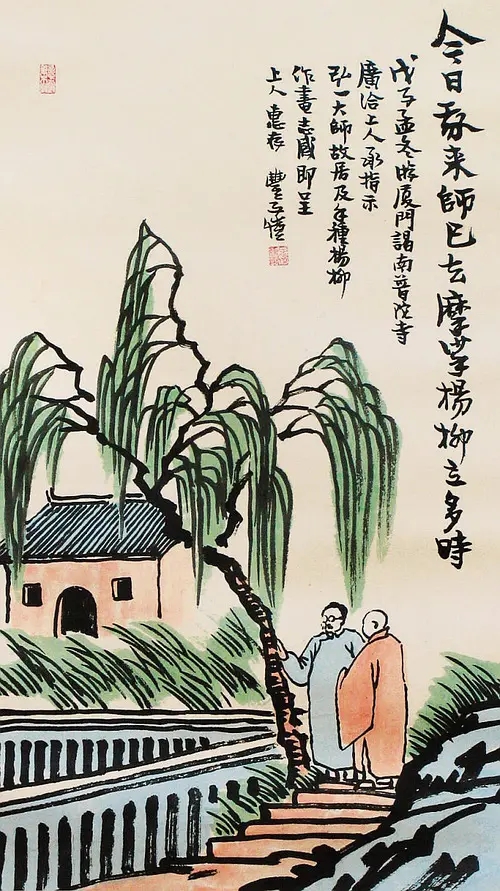 今日我来師已去摩挲楊柳立多時
戊子孟冬游廈門謁南普陀寺
廣洽上人承指示
弘一大師故居及手種楊柳
作畫志感即呈
上人惠存 豐子愷